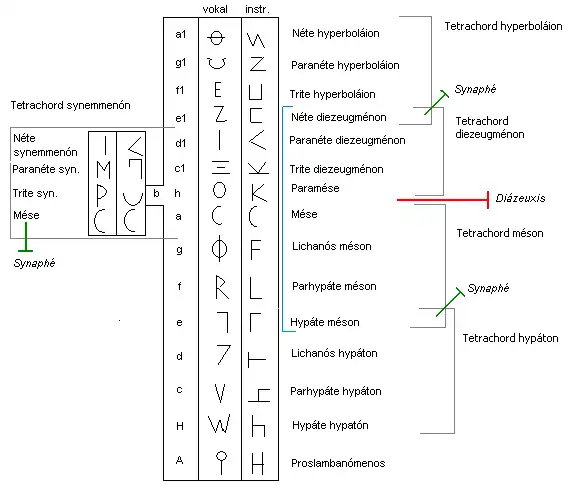 vokal instr.
a1 Néte hyperboláion
Tetrachord hyperboláion
g1 Paranéte hyperboláion
f1 Trite hyperboláion
Synaphé
Tetrachord synemmenón
e1 Néte diezeugménon
Tetrachord
diezeugménon
Néte
synemmenón
d1 Paranéte diezeugménon
Paranéte syn.
c1 Trite diezeugménon
Trite syn.
b h Paramése
Diázeuxis
Mése
a Mése
Tetrachord méson
g Lichanós méson
Synaphé
f Parhypáte méson
Synaphé
e Hypáte méson
Tetrachord hypáton
d Lichanós hypáton
c Parhypáte hypáton
H Hypáte hypatón
A Proslambanómenos